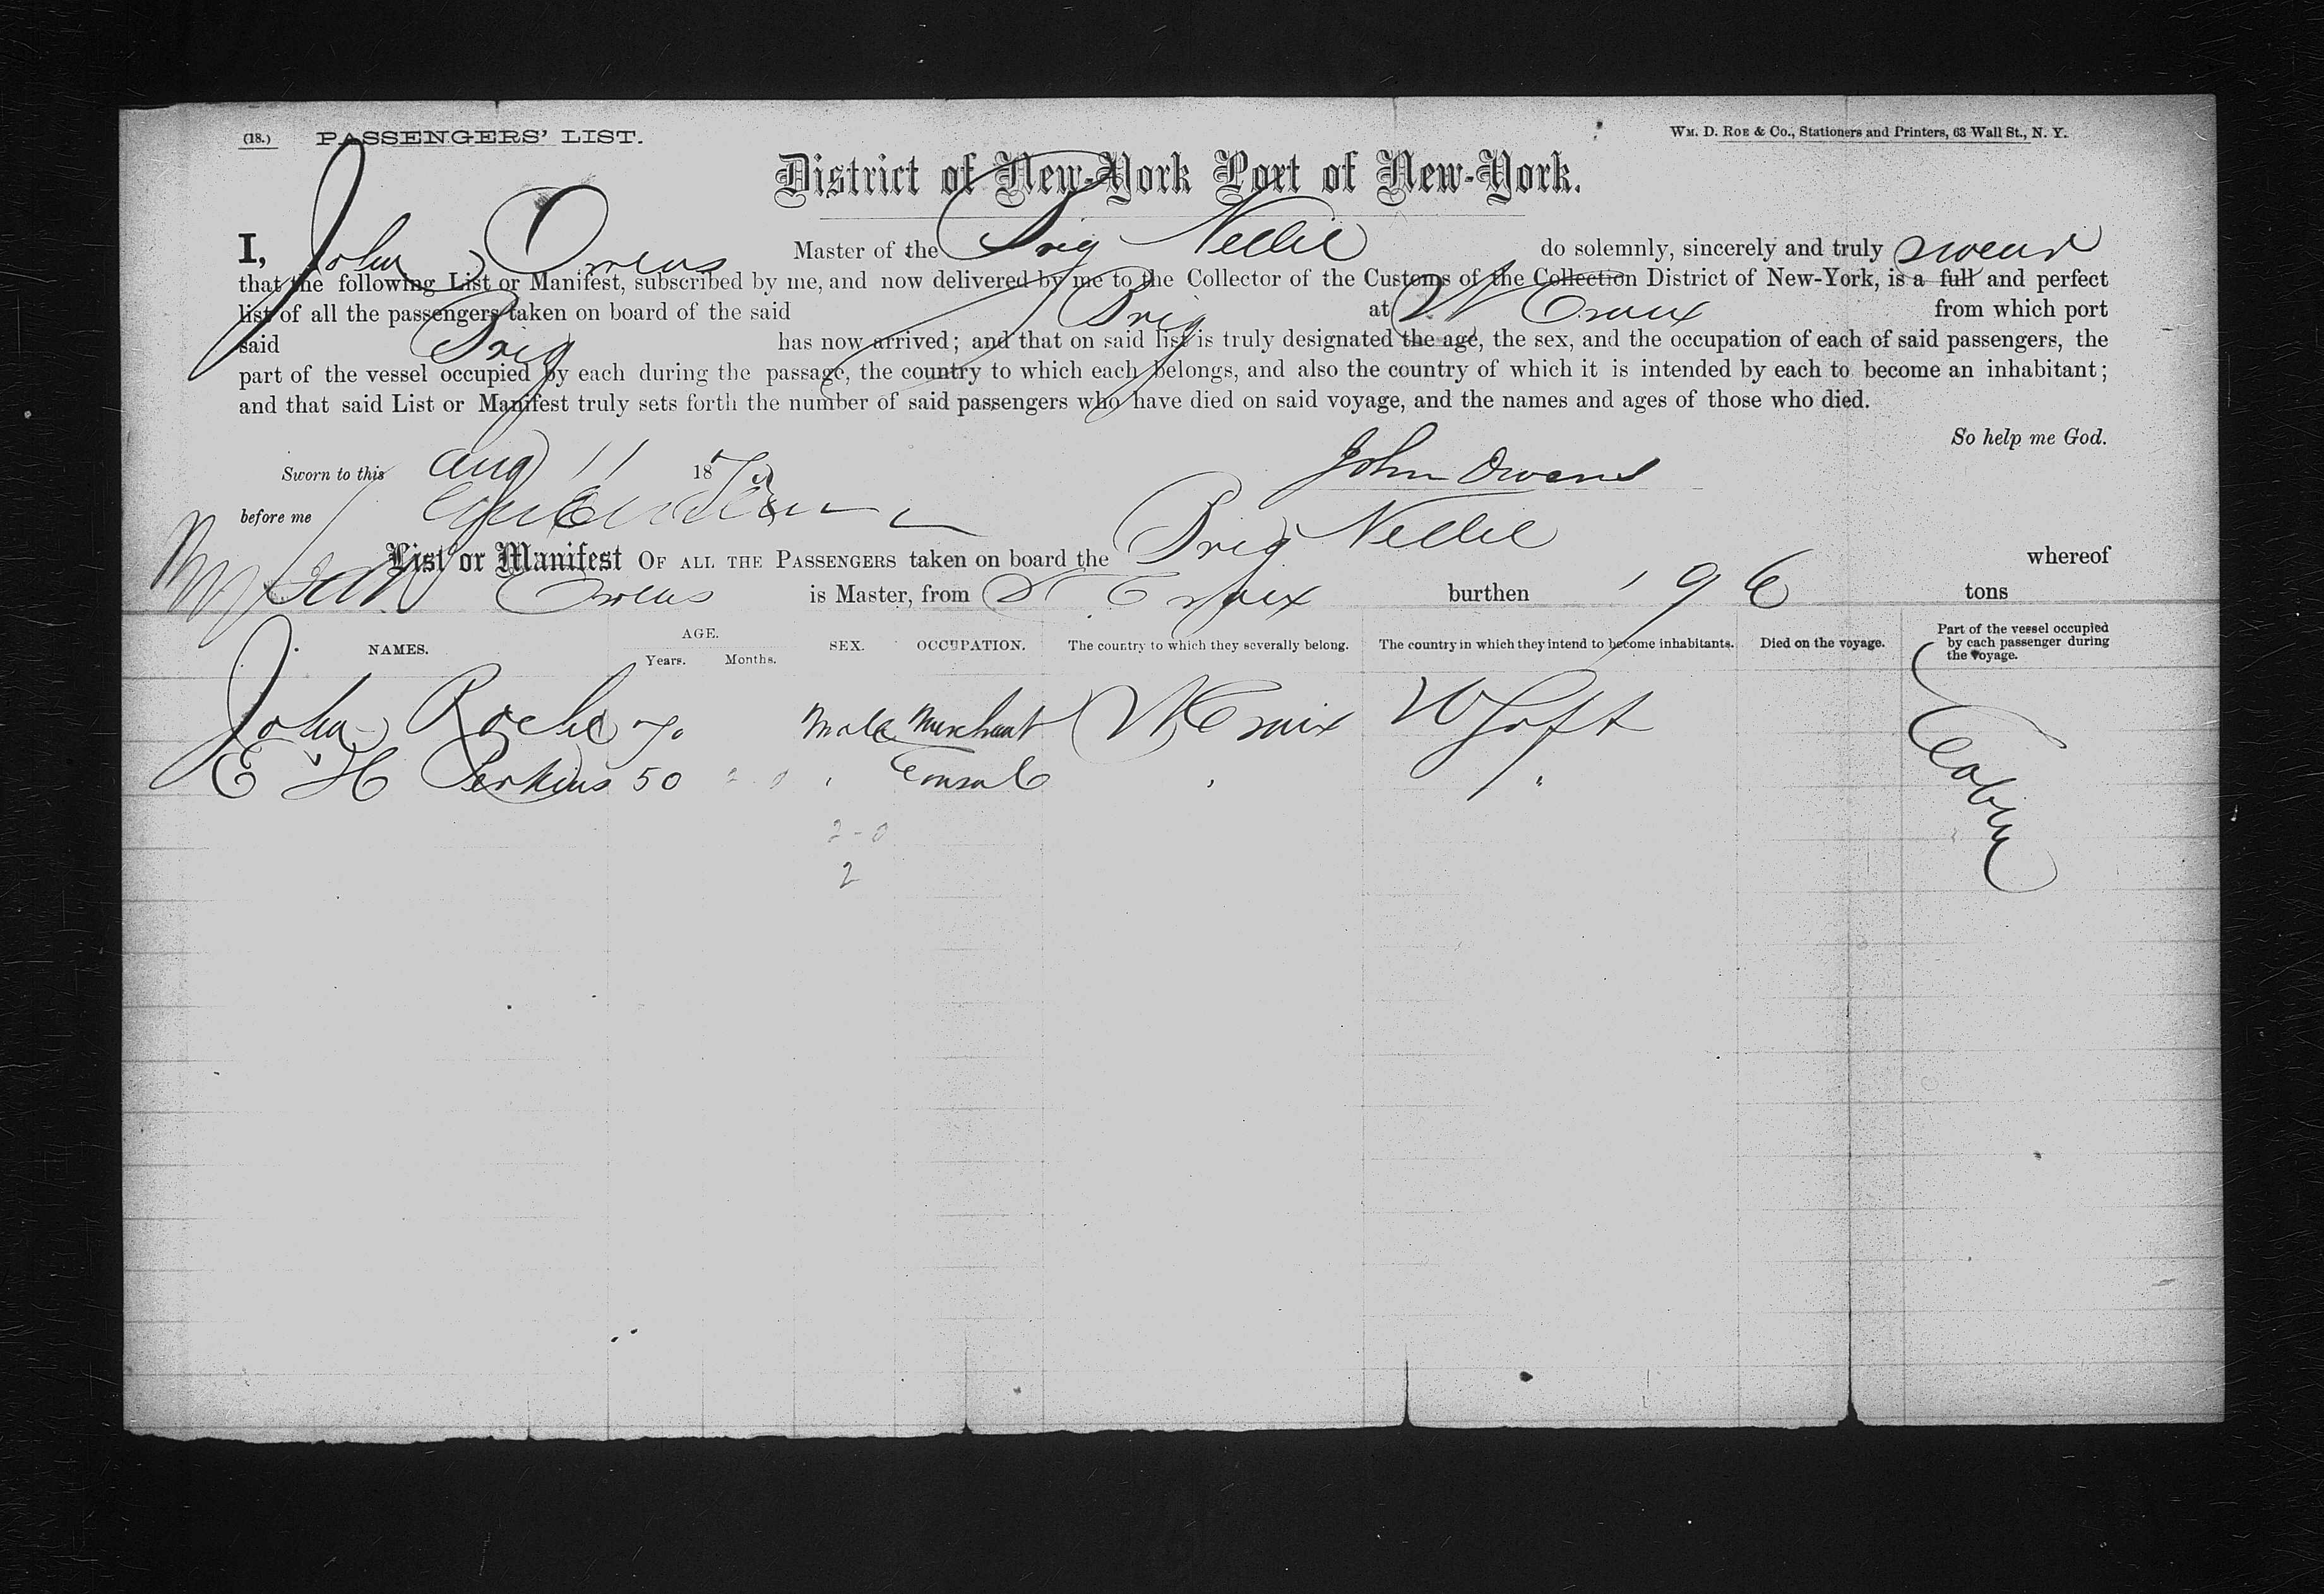 (18.) PASSENGERS' LIST.
WM. D. ROE & Co., Stationers and Printers, 63 Wall St., N. Y.
District of New-York Port of New-York.
I, John Owens Master of the Brig Nellie do solemnly, sincerely and truly swear
that the following List or Manifest, subscribed by me, and now delivered by me to the Collector of the Customs of the Collection District of New-York, is a full and perfect
list of all the passengers taken on board of the said Brig at St Croix from which port
said Brig has now arrived; and that on said list is truly designated the age, the sex, and the occupation of each of said passengers, the
part of the vessel occupied by each during the passage, the country to which each belongs, and also the country of which it is intended by each to become an inhabitant;
and that said List or Manifest truly sets forth the number of said passengers who have died on said voyage, and the names and ages of those who died.
So help me God.
Sworn to this Aug 11 187
John Owens
before me
List or Manifest OF ALL THE PASSENGERS taken on board the Brig Nellie whereof
Owens is Master, from St Croix burthen 196 tons
NAMES. AGE. Years. Months. SEX. OCCUPATION. The country to which they severally belong. The country in which they intend to become inhabitants. Died on the voyage. Part of the vessel occupied by each passenger during the voyage.
John Roche 70 Male Merchant St Croix Cabin
E H Perkins 50 " Consul " "
2-0
2